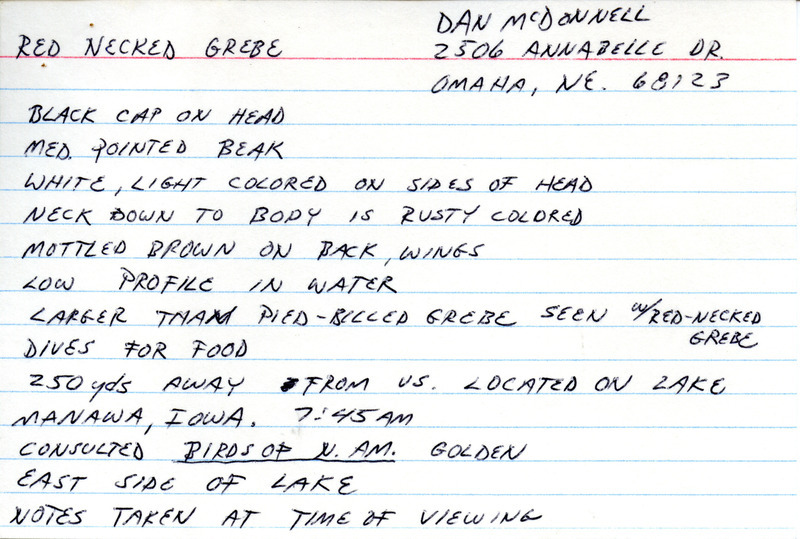 DAN MCDONNELL
RED NECKED GREBE 2506 ANNABELLE DR.
OMAHA, NE. 68123
BLACK CAP ON HEAD
MED. POINTED BEAK
WHITE, LIGHT COLORED ON SIDES OF HEAD
NECK DOWN TO BODY IS RUSTY COLORED
MOTTLED BROWN ON BACK, WINGS
LOW PROFILE IN WATER
LARGER THAN PIED-BILLED GREBE SEEN W/RED-NECKED
GREBE
DIVES FOR FOOD
250 yds AWAY FROM US. LOCATED ON LAKE
MANAWA, IOWA. 7:45 AM
CONSULTED BIRDS OF N. AM. GOLDEN
EAST SIDE OF LAKE
NOTES TAKEN AT TIME OF VIEWING